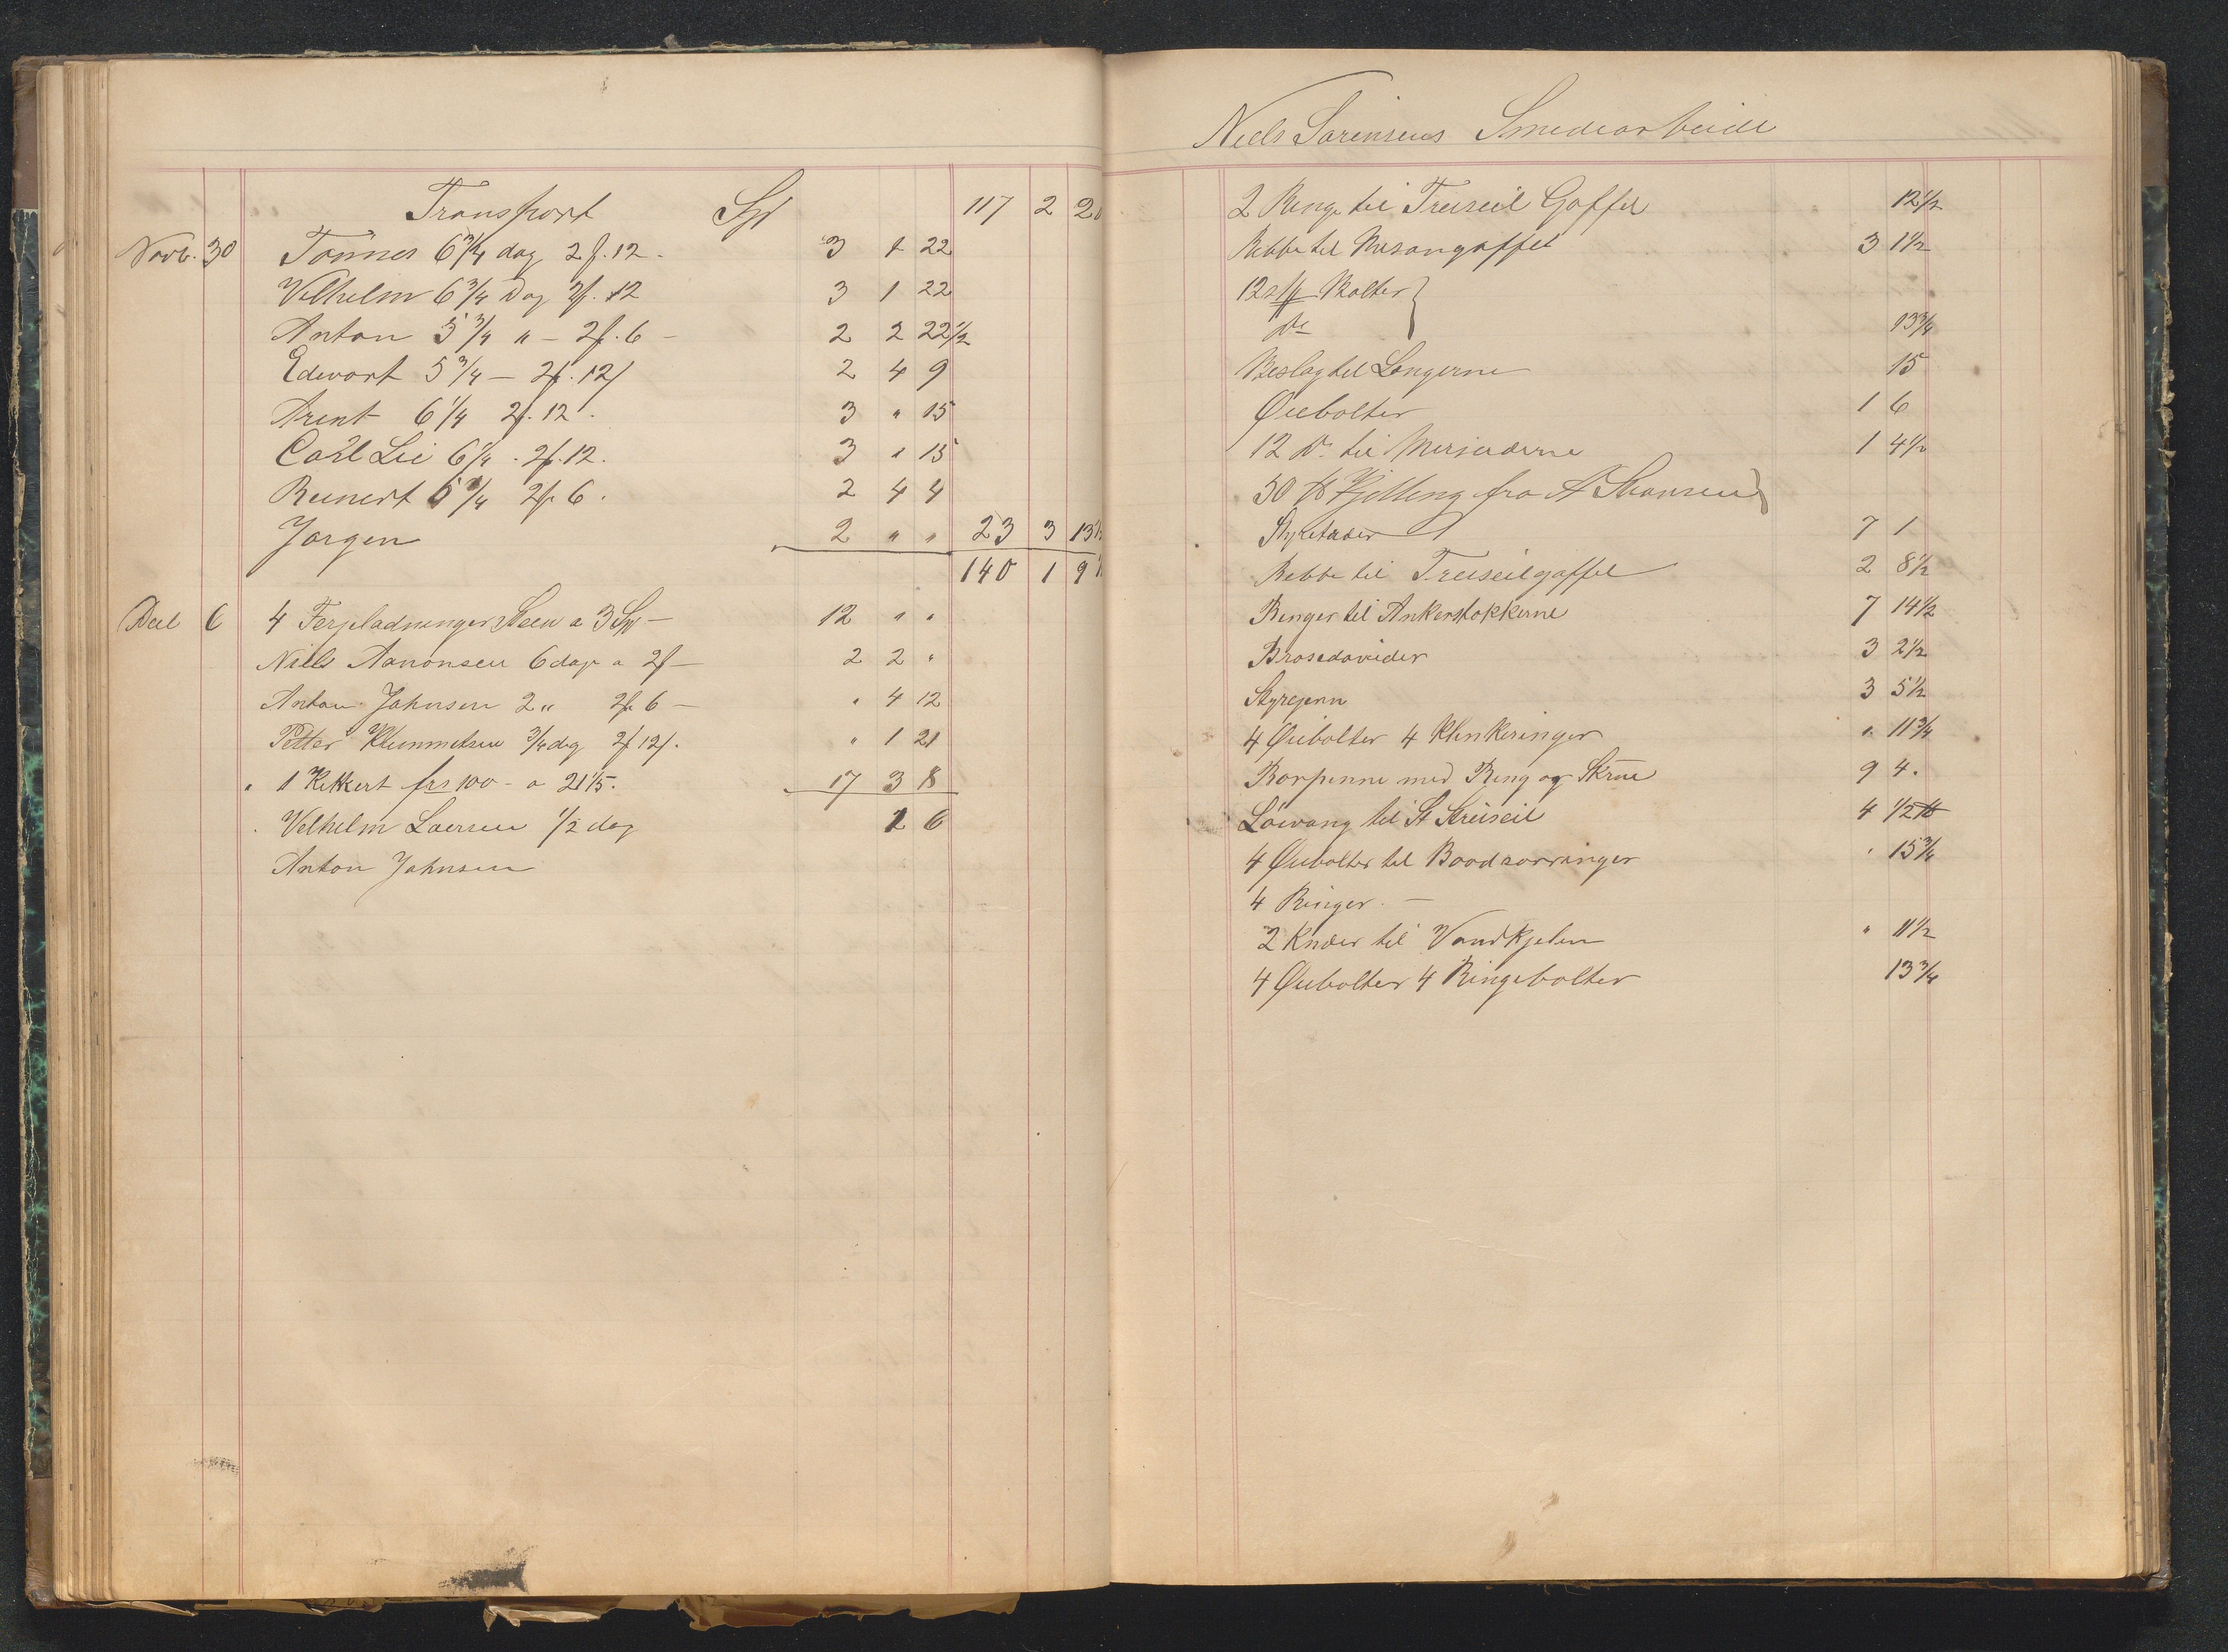 Transport Spd 117 2 20
Novb. 30 Tonnes 6 3/4 dag 2f. 12. 3 1 22
Vilhelm 6 3/4 Dag 2f. 12 3 1 22
Anton 5 3/4 " — 2f. 6 — 2 2 22 1/2
Edevart 5 3/4 — 2f. 12/ 2 4 9
Arent 6 1/4 2f. 12. 3 " 15
Carl Lie 6 1/4 . 2f. 12. 3 " 15
Reinert 5 3/4 2f. 6. 2 4 4
Jorgen 2 " " 23 3 13 1/2
140 1 9
Decb 6 4 Ferjeladninger Steen a 3 Sp — 12 " "
Niels Aanonsen 6 dage a 2f — 2 2 "
Anton Johnsen 2 " 2f 6 — " 4 12
Petter Klemmetsen 3/4 dag 2f 12/. " 1 21
" 1 Kikkert frs 100 - a 21 1/5. 17 3 8
Velhelm Laersen 1/2 dag 1 6
Anton Johnsen
Niels Sørensens Smedearbeide
2 Ringe til Treiseil Gaffel 12 1/2
Bebbe til Mesangaffel 3 1 1/2
12 Bolter }
Do 13 3/4
Beslag til Longerne 15
Øiebolter 1 6
12 Do til Merserderne 1 4 1/2
50 ℔ Kjetting fra A
7 1
Bebbe til Treiseilgaffel 2 8 1/2
Ringer til Ankerstokkerne 7 14 1/2
Brasedavider 3 2 1/2
Styrejern 3 5 1/2
4 Øiebolter 4 Klinkeringer " 11 3/4
Borpinne med Ring og Skrue 9 4.
Løivang til St Streiseil 4 1/2 ℔
4 Øiebolter til Baadsorringer " 15 3/4
4 Ringer. —
2 Knæer til Vandkjelen " 11 1/2
4 Øiebolter 4 Ringebolter 13 3/4